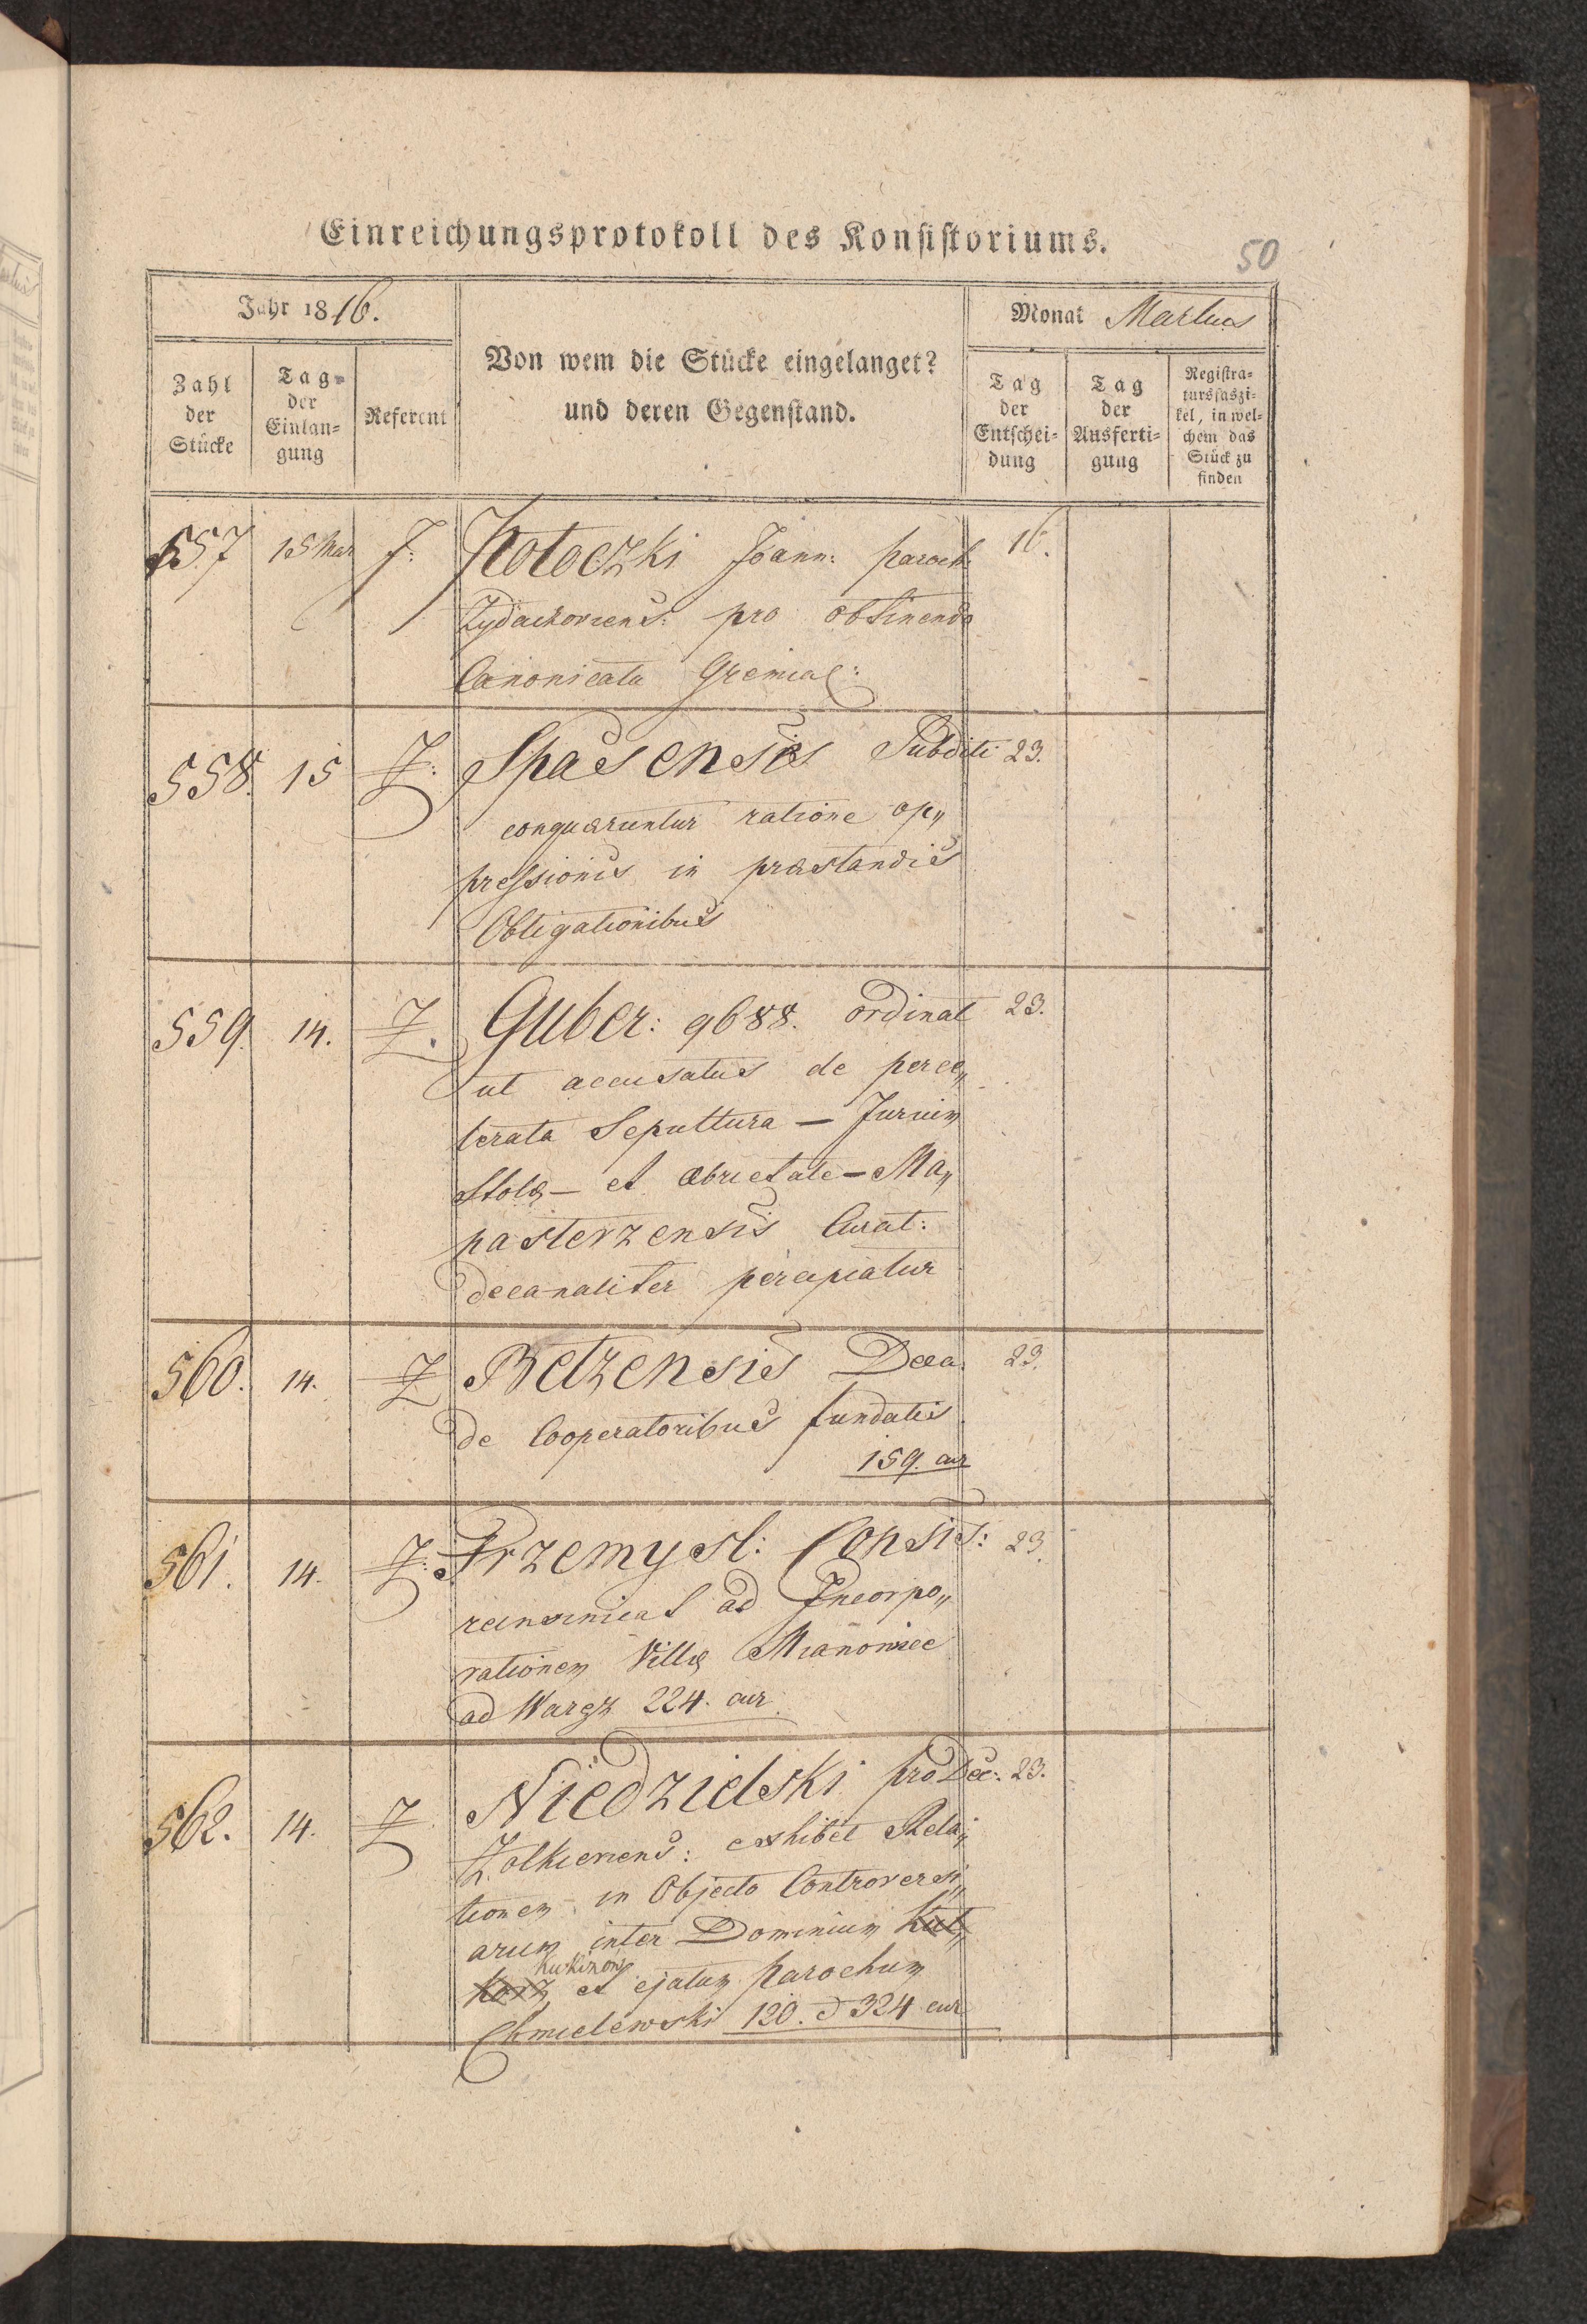 Einreichungsprotokoll des Konsistoriums.
50
Jahr 1816.
Monat Martius
Von wem die Stücke eingelanget?
und deren Gegenstand.
Zahl
der
Stücke
Tag
der
Einlan-
gung
Referent
Tag
der
Entschei-
dung
Tag
der
Ausferti-
gung
Registra-
tursfaszi-
kel, in wel-
chem das
Stück zu
finden
557 15 Mar J: Joann: paroch 16.
pro obtinendo
Canonicatu Gremial:
558. 15 Z: Spasensis Subditi 23.
conquæruntur ratione op„
pressionis in præstandis
Obligationibus
559. 14. Z. Guber: 9688. ordinat 23.
ut accusatus de
Sepultura —
Stolæ — et Æbrietate — Ma„
pasterzensis Curat:
decanaliter percipiatur
560. 14. Z Belzensis Deca. 23.
de Cooperatoribus fundatis
159. cur
561. 14. Z: Przemysl: Consis: 23.
ad Incorpo„
rationem Villæ
ad Waręz 224. cur.
562. 14. Z Niedzielski pro Dec: 23.
Zolkieviens: exhibet Rela„
tionem in Objecto Controversi„
arum inter Dominium Kut„
Kukizow
korz et ejatum parochum
Chmielewski 120. & 324 cur